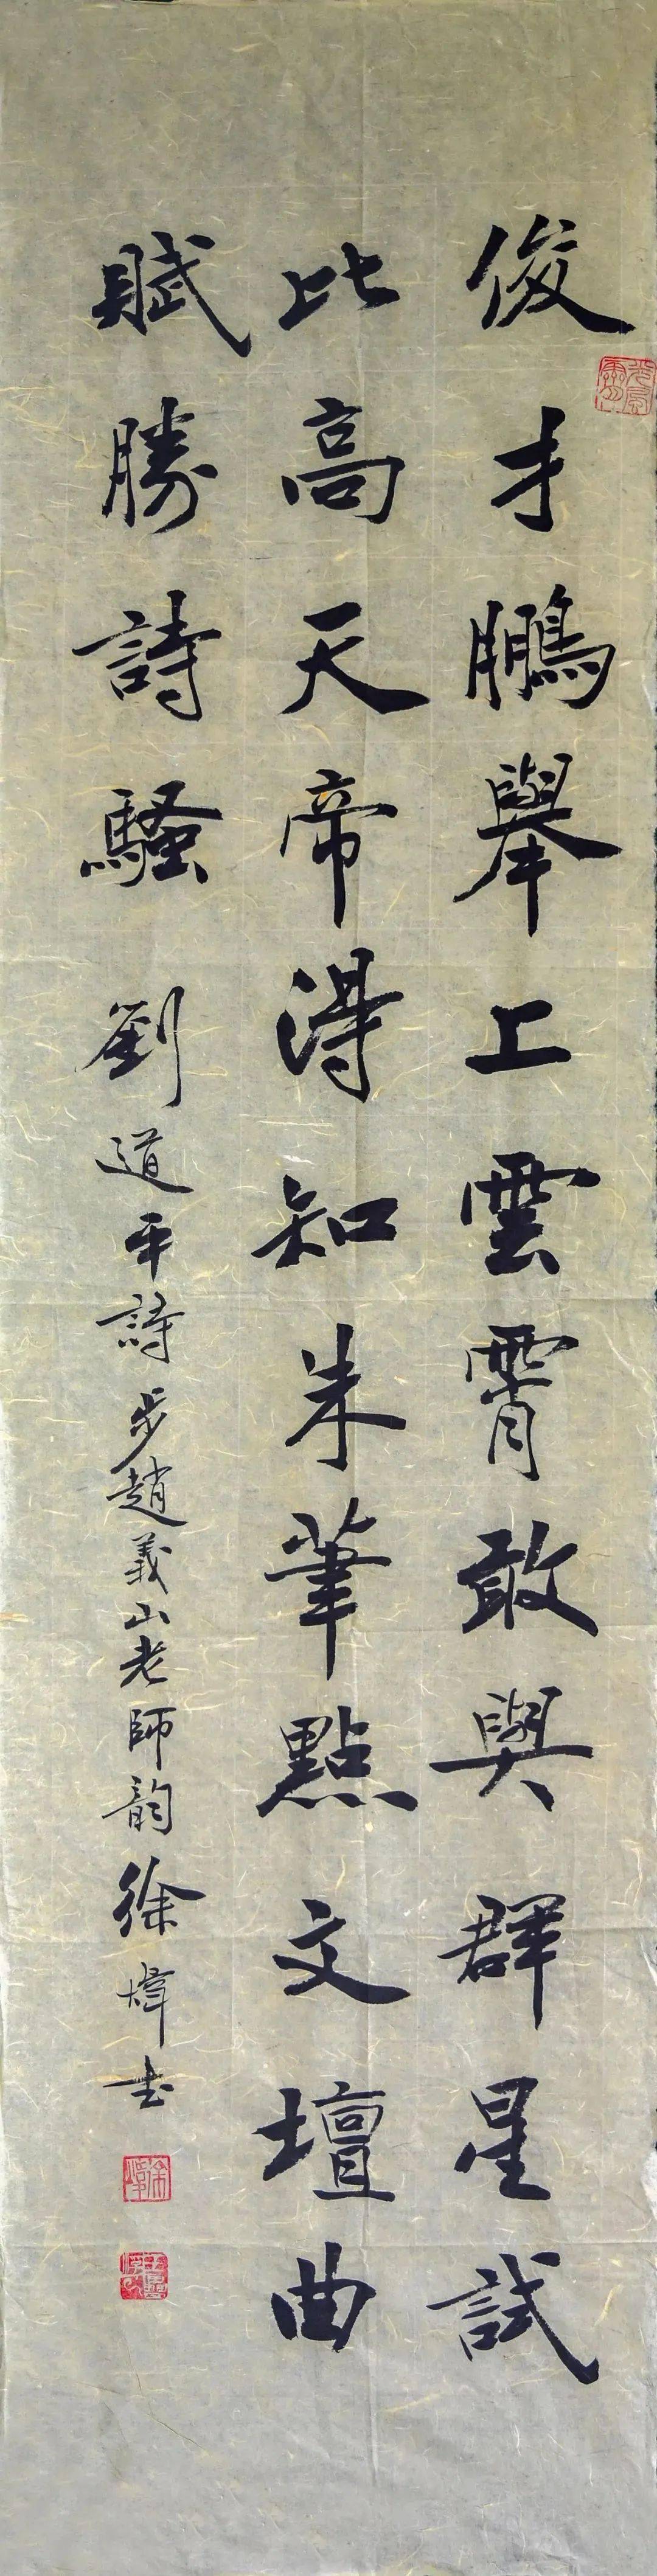 俊才鵬舉上雲霄敢與群星試
比高天帝得知朱筆點文壇曲
賦勝詩騷 劉道平詩步趙義山老師韵徐煒书